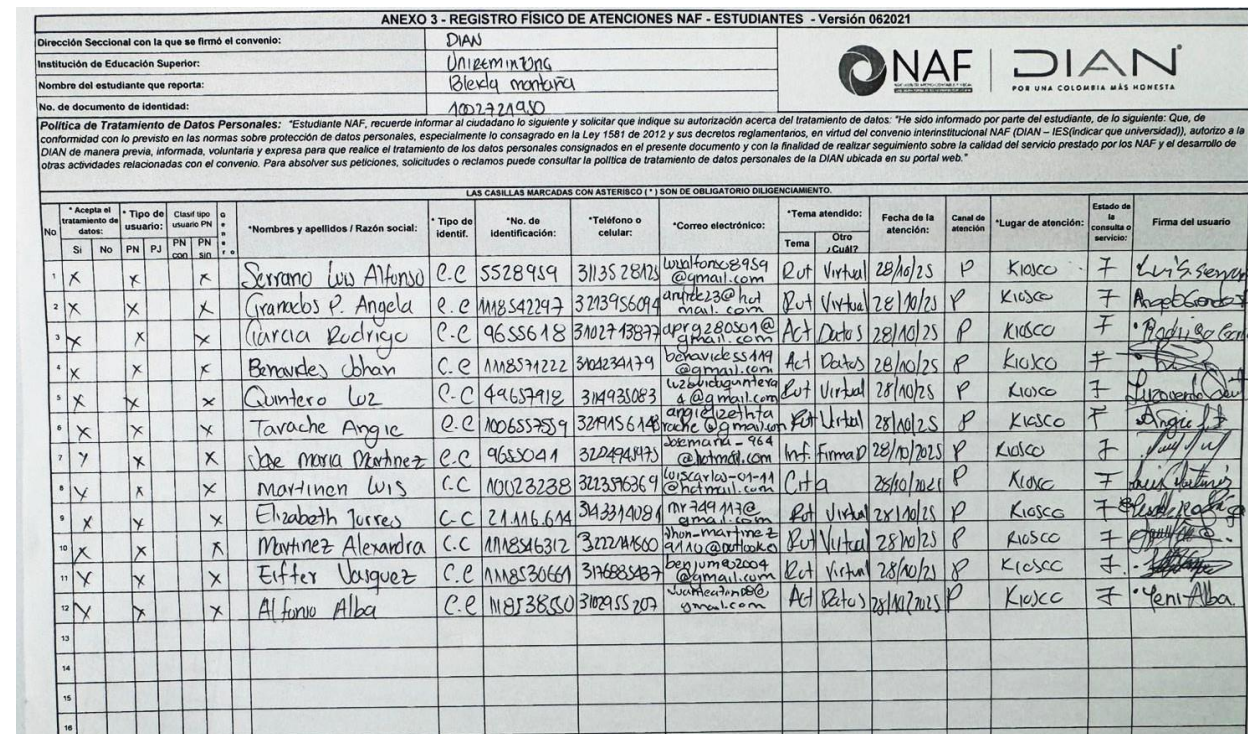 ANEXO 3 - REGISTRO FÍSICO DE ATENCIONES NAF - ESTUDIANTES - Versión 062021
Dirección Seccional con la que se firmó el convenio: DIAN
Institución de Educación Superior: Uniremintong
Nombre del estudiante que reporta: Blexda montaña
No. de documento de identidad: 1002721950
NAF DIAN
POR UNA COLOMBIA MÁS HONESTA
Política de Tratamiento de Datos Personales: "Estudiante NAF, recuerde informar al ciudadano lo siguiente y solicitar que indique su autorización acerca del tratamiento de datos: "He sido informado por parte del estudiante, de lo siguiente: Que, de
conformidad con lo previsto en las normas sobre protección de datos personales, especialmente lo consagrado en la Ley 1581 de 2012 y sus decretos reglamentarios, en virtud del convenio interinstitucional NAF (DIAN – IES(indicar que universidad)), autorizo a la
DIAN de manera previa, informada, voluntaria y expresa para que realice el tratamiento de los datos personales consignados en el presente documento y con la finalidad de realizar seguimiento sobre la calidad del servicio prestado por los NAF y el desarrollo de
otras actividades relacionadas con el convenio. Para absolver sus peticiones, solicitudes o reclamos puede consultar la política de tratamiento de datos personales de la DIAN ubicada en su portal web."
LAS CASILLAS MARCADAS CON ASTERISCO ( * ) SON DE OBLIGATORIO DILIGENCIAMIENTO.
No * Acepta el tratamiento de datos: * Tipo de usuario: Clasif tipo usuario PN *Nombres y apellidos / Razón social: * Tipo de identif. *No. de identificación: *Teléfono o celular: *Correo electrónico: *Tema atendido: Fecha de la atención: Canal de atención *Lugar de atención: Estado de la consulta o servicio: Firma del usuario
Si No PN PJ PN con PN sin Tema Otro ¿Cuál?
1 X X X Serrano Luis Alfonso C.C 5528959 3113528125 luisalfonso8959@gmail.com Rut Virtual 28/10/25 P Kiosco F
2 X X X Granados P. Angela C.C 1118542297 3213956094 Rut Virtual 28/10/25 P Kiosco F
3 X X X Garcia Rodrigo C.C 9655618 3102713877 aprg280501@gmail.com Act Datos 28/10/25 P Kiosco F
4 X X X Benavides Johan C.C 1118571222 3104234179 benavidess119@gmail.com Act Datos 28/10/25 P Kiosco F
5 X X X Quintero Luz C.C 49657918 3114935083 Rut Virtual 28/10/25 P Kiosco F
6 X X X Tarache Angie C.C 1006557559 3219156148 angielizethtarache@gmail.com Rut Virtual 28/10/25 P Kiosco F Angie
7 X X X Jose maria Martinez C.C 9655041 3224948975 Josemaria-964@hotmail.com Inf. firma D 28/10/2025 P Kiosco F
8 X X X Martinen Luis C.C 10023238 3223576369 luiscarlos-01-11@hotmail.com Cita P Kiosco F
9 X X X Elizabeth Torres C.C 21.116.614 3143314081 mr749117@gmail.com Rut Virtual 28/10/25 P Kiosco F
10 X X X Martinez Alexandra C.C 1118546312 Jhon-martinez9110@outlook Rut Virtual 28/10/25 P Kiosco F
11 X X X Eiffer Vasquez C.C 1118530661 3176885437 benjumea2004@gmail.com Rut Virtual 28/10/25 P Kiosco F
12 X X X Alfonso Alba C.C 118538550 3102955207 Act Datos 28/10/2025 P Kiosco F Yeni Alba.
13
14
15
16